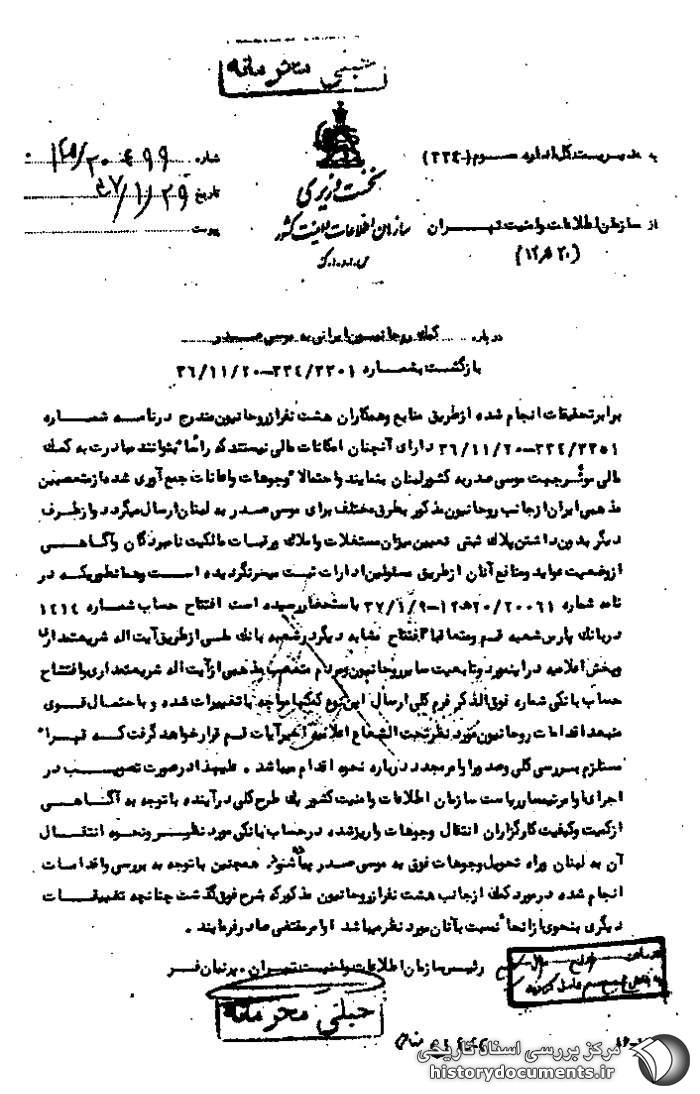 خیلی محرمانه
به مدیریت کل اداره سوم (۳۳۴)
شماره ۲۰۴۹۹/
نخست وزیری
تاریخ ۳۷/۱/۲۹
از سازمان اطلاعات و امنیت تهران
سازمان اطلاعات و امنیت کشور
پیوست
(۲۰ ه‍ ۱۲)
س.ا.و.ا.ک
درباره کمک روحانیون ایرانی به موسی صدر
بازگشت بشماره ۳۳۴/۳۳۰۱-۳۶/۱۱/۲۰
برابر تحقیقات انجام شده از طریق منابع و همکاران هشت نفر از روحانیون مندرج در نامه شماره
۳۳۴/۳۳۵۱-۳۶/۱۱/۲۰ دارای آنچنان امکانات مالی نیستند که راساً بتوانند مبادرت به کمک
مالی موثر جهت موسی صدر به کشور لبنان بنمایند و احتمالاً وجوهات و اعانات جمع آوری شده از متعصبین
مذهبی ایران از جانب روحانیون مذکور بطرق مختلف برای موسی صدر به لبنان ارسال میگردد و از طرف
دیگر بدون داشتن پلاک ثبتی تعیین میزان مستغلات و املاک و رقبات مالکیت نامبردگان و آگاهی
از وضعیت عواید و منافع آنان از طریق مسئولین ادارات ثبت میسر نگردیده است و همانطوریکه در
نامه شماره ۲۰۰۶۱/۲۰ه‍۱۲-۳۷/۱/۹ باستحضار رسیده است افتتاح حساب شماره ۱۴۱۴
در بانک پارس شعبه قم و متعاقباً افتتاح مشابه دیگر در شعبه بانک ملی از طریق آیت اله شریعتمداری
و پخش اعلامیه در اینمورد و تابعیت سایر روحانیون و مردم متعصب مذهبی از آیت اله شریعتمداری و افتتاح
حساب بانکی شماره فوق الذکر فرم کلی ارسال این نوع کمکها مواجه با تغییرات شده و با احتمال قوی
منبعد اقدامات روحانیون مورد نظر تحت الشعاع اعلامیه اخیر آیات قم قرار خواهد گرفت که قهراً
مستلزم بررسی کلی و صدور اوامر مجدد درباره نحوه اقدام میباشد . علیهذا در صورت تصویب در
اجرای اوامر تیمسار ریاست سازمان اطلاعات و امنیت کشور یک طرح کلی در آینده با توجه به آگاهی
از کمیت و کیفیت کارگزاران انتقال وجوهات واریز شده در حساب بانکی مورد نظر و نحوه انتقال
آن به لبنان و راه تحویل وجوهات فوق به موسی صدر پیاده شود. همچنین با توجه به بررسی و اقدامات
انجام شده در مورد کمک از جانب هشت نفر از روحانیون مذکور که بشرح فوق گذشت چنانچه تحقیقات
دیگری بنحوی از انحاء نسبت به آنان مورد نظر میباشد اوامر مقتضی صادر فرمایند .
رئیس سازمان اطلاعات و امنیت تهران . پرنیان فر
خیلی محرمانه
مرکز بررسی اسناد تاریخی
historydocuments.ir